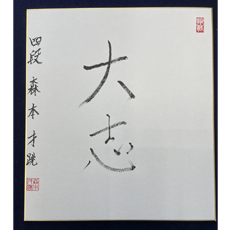 大志
四段 森本才跳